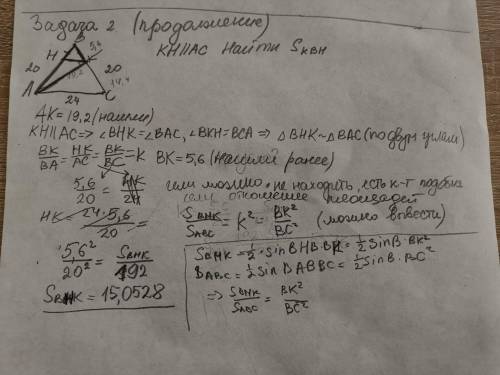 Задача 2 (продолжение)
KH||AC Найти S KBH
B
H
5,6
20
19,2
20
14,4
A
24
C
AK = 19,2 (нашли)
KH||AC => ∠BHK=∠BAC, ∠BKH=BCA => △BHK~△BAC (по двум углам)
BK/BA = HK/AC = BK/BC = K BK = 5,6 (Нашли ранее)
5,6/20 = HK/24 или можно не находить, есть к-т подобия
или отношение площадей
HK = 24·5,6/20 =
S BHK/S ABC = K² = BK²/BC² (можно вывести)
5,6²/20² = S BHK/192
S BHK = 15,0528
S BHK = 1/2 · sinB HB·BK = 1/2 sinB · BK²
S ABC = 1/2 sinB AB BC = 1/2 sinB · BC²
=> S BHK/S ABC = BK²/BC²